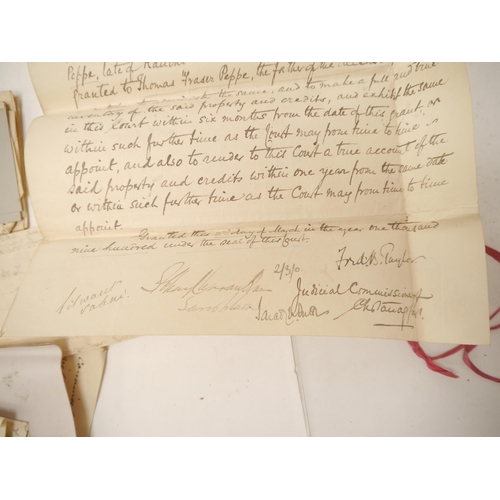 Peppe, late of
granted to Thomas Fraser Peppe, the father of the
the same, and to make a full and true
inventory of the said property and credits, and exhibit the same
in this Court within six months from the date of this grant, or
within such further time as the Court may from time to time
appoint, and also to render to this Court a true account of the
said property and credits within one year from the same date
or within such further time as the Court may from time to time
appoint.
Granted this day of March in the year one thousand
nine hundred under the seal of this Court.
2/3/0
Fred B. Taylor
Judicial Commissioner